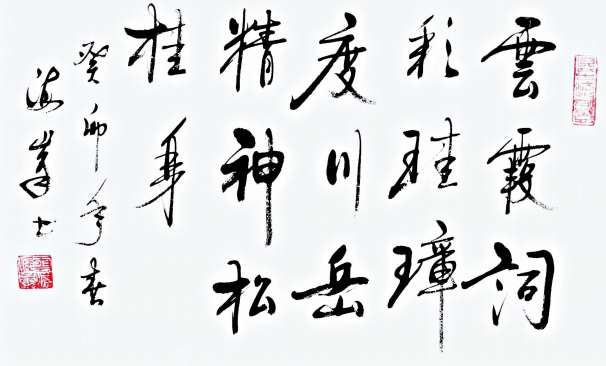 雲霞詞
彩珪璋
度川岳
精神松
桂身
癸卯年春
海峯书